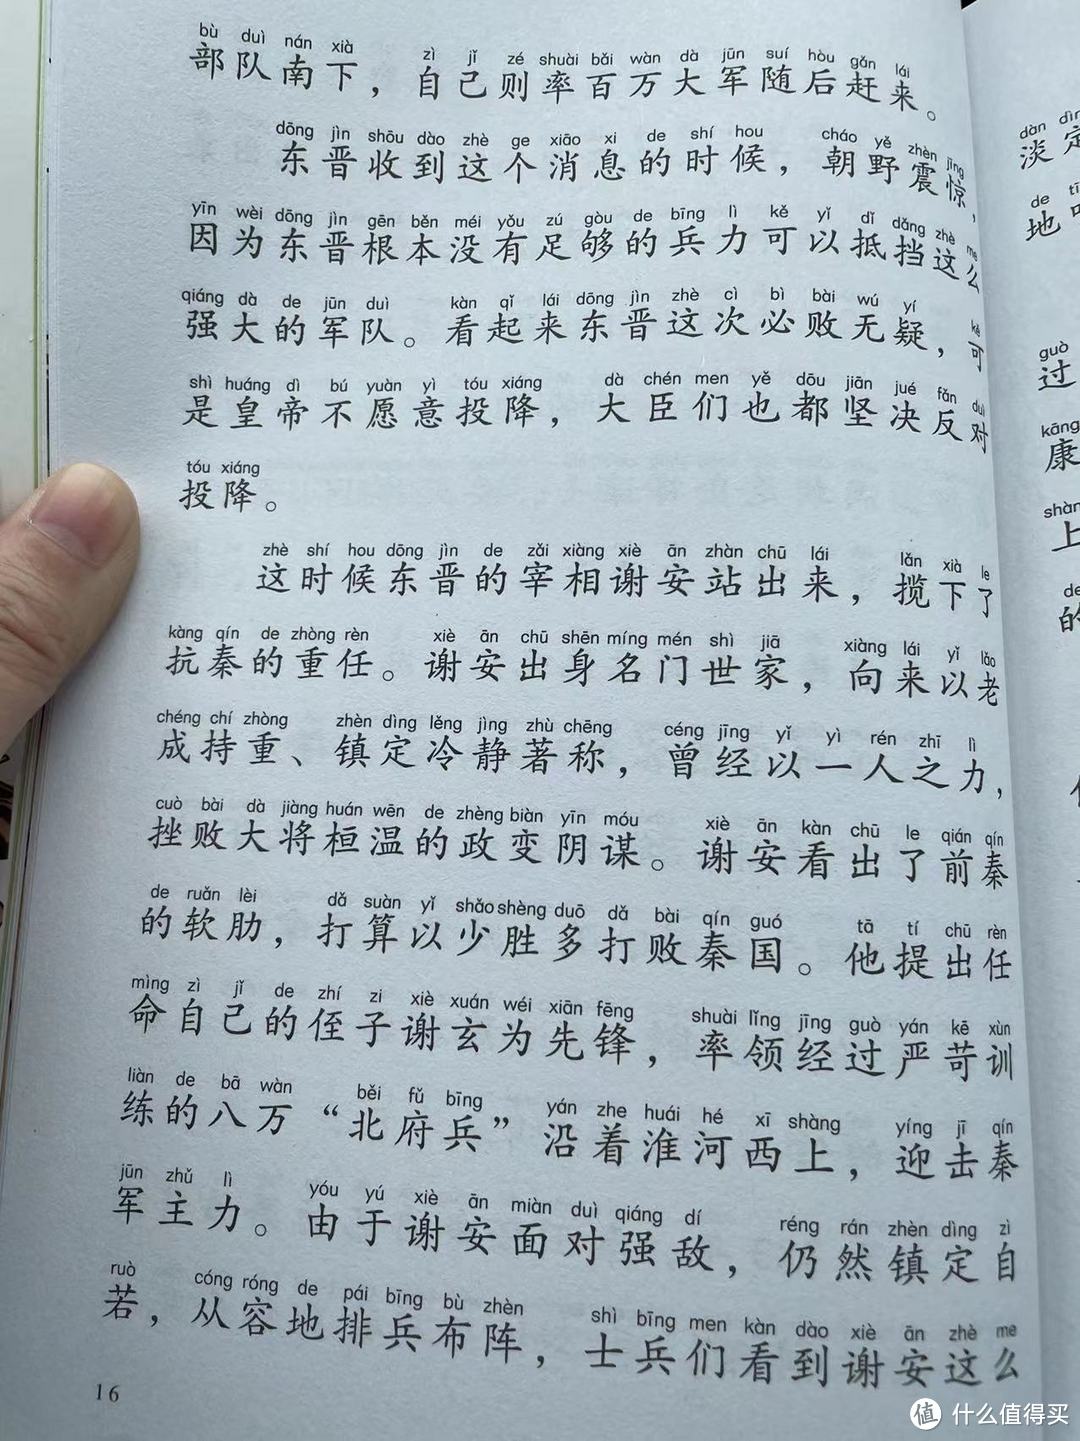 bù duì nán xià zì jǐ zé shuài bǎi wàn dà jūn suí hòu gǎn lái
部队南下，自己则率百万大军随后赶来。
dōng jìn shōu dào zhè ge xiāo xi de shí hou cháo yě zhèn jīng
东晋收到这个消息的时候，朝野震惊，
yīn wèi dōng jìn gēn běn méi yǒu zú gòu de bīng lì kě yǐ dǐ dǎng zhè me
因为东晋根本没有足够的兵力可以抵挡这么
qiáng dà de jūn duì kàn qǐ lái dōng jìn zhè cì bì bài wú yí kě
强大的军队。看起来东晋这次必败无疑，可
shì huáng dì bú yuàn yì tóu xiáng dà chén men yě dōu jiān jué fǎn duì
是皇帝不愿意投降，大臣们也都坚决反对
tóu xiáng
投降。
zhè shí hou dōng jìn de zǎi xiàng xiè ān zhàn chū lái lǎn xià le
这时候东晋的宰相谢安站出来，揽下了
kàng qín de zhòng rèn xiè ān chū shēn míng mén shì jiā xiàng lái yǐ lǎo
抗秦的重任。谢安出身名门世家，向来以老
chéng chí zhòng zhèn dìng lěng jìng zhù chēng céng jīng yǐ yì rén zhī lì
成持重、镇定冷静著称，曾经以一人之力，
cuò bài dà jiàng huán wēn de zhèng biàn yīn móu xiè ān kàn chū le qián qín
挫败大将桓温的政变阴谋。谢安看出了前秦
de ruǎn lèi dǎ suàn yǐ shǎo shèng duō dǎ bài qín guó tā tí chū rèn
的软肋，打算以少胜多打败秦国。他提出任
mìng zì jǐ de zhí zi xiè xuán wéi xiān fēng shuài lǐng jīng guò yán kē xùn
命自己的侄子谢玄为先锋，率领经过严苛训
liàn de bā wàn běi fǔ bīng yán zhe huái hé xī shàng yíng jī qín
练的八万“北府兵”沿着淮河西上，迎击秦
jūn zhǔ lì yóu yú xiè ān miàn duì qiáng dí réng rán zhèn dìng zì
军主力。由于谢安面对强敌，仍然镇定自
ruò cóng róng de pái bīng bù zhèn shì bīng men kàn dào xiè ān zhè me
若，从容地排兵布阵，士兵们看到谢安这么
16
dàn dìn
淡定
de
地
guò
过
kāng
康
shàn
上
de
的
值 什么值得买